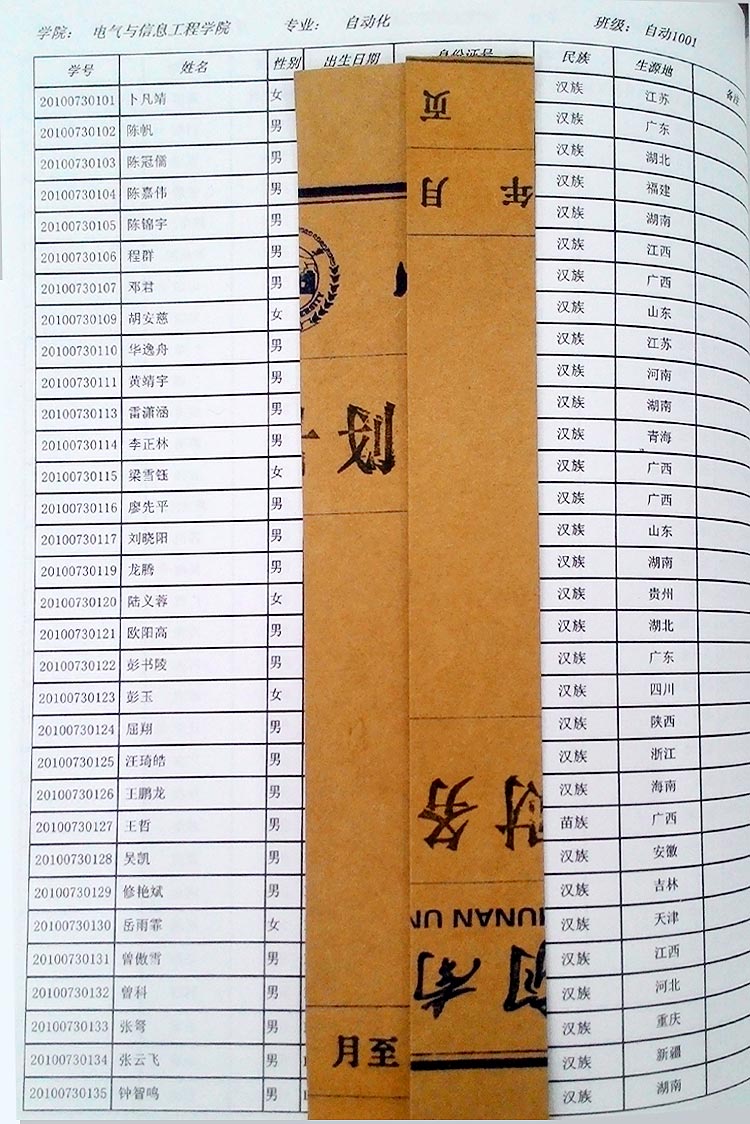 学院： 电气与信息工程学院 专业： 自动化 班级：自动1001
学号 姓名 性别 出生日期 身份证号 民族 生源地 备注
20100730101 卜凡靖 女 汉族 江苏
20100730102 陈帆 男 汉族 广东
20100730103 陈冠儒 男 汉族 湖北
20100730104 陈嘉伟 男 汉族 福建
20100730105 陈锦宇 男 汉族 湖南
20100730106 程群 男 汉族 江西
20100730107 邓君 男 汉族 广西
20100730109 胡安慈 女 汉族 山东
20100730110 华逸舟 男 汉族 江苏
20100730111 黄靖宇 男 汉族 河南
20100730113 雷潇涵 男 汉族 湖南
20100730114 李正林 男 汉族 青海
20100730115 梁雪钰 女 汉族 广西
20100730116 廖先平 男 汉族 广西
20100730117 刘晓阳 男 汉族 山东
20100730119 龙腾 男 汉族 湖南
20100730120 陆义蓉 女 汉族 贵州
20100730121 欧阳高 男 汉族 湖北
20100730122 彭书陵 男 汉族 广东
20100730123 彭玉 女 汉族 四川
20100730124 屈翔 男 汉族 陕西
20100730125 汪琦皓 男 汉族 浙江
20100730126 王鹏龙 男 汉族 海南
20100730127 王哲 男 苗族 广西
20100730128 吴凯 男 汉族 安徽
20100730129 修艳斌 男 汉族 吉林
20100730130 岳雨霏 女 汉族 天津
20100730131 曾傲雪 男 汉族 江西
20100730132 曾科 男 汉族 河北
20100730133 张弩 男 汉族 重庆
20100730134 张云飞 男 汉族 新疆
20100730135 钟智鸣 男 汉族 湖南
页
年 月
财务
HUNAN UN
湖南
月至